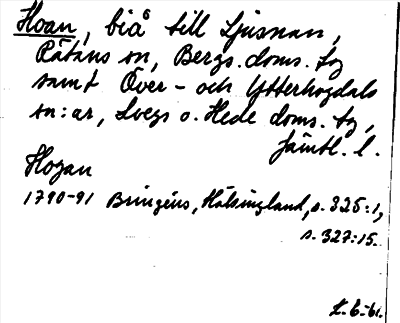 Hoan, biå till Ljusnan,
Rätans sn, Bergs doms. tg
samt Över- och Ytterhogdals
sn:ar, Svegs o. Hede doms. tg,
Jämtl. l.
Hogan
1790-91 Bringéus, Hälsingland, s. 325:1,
s. 327:15.
L.B-61.